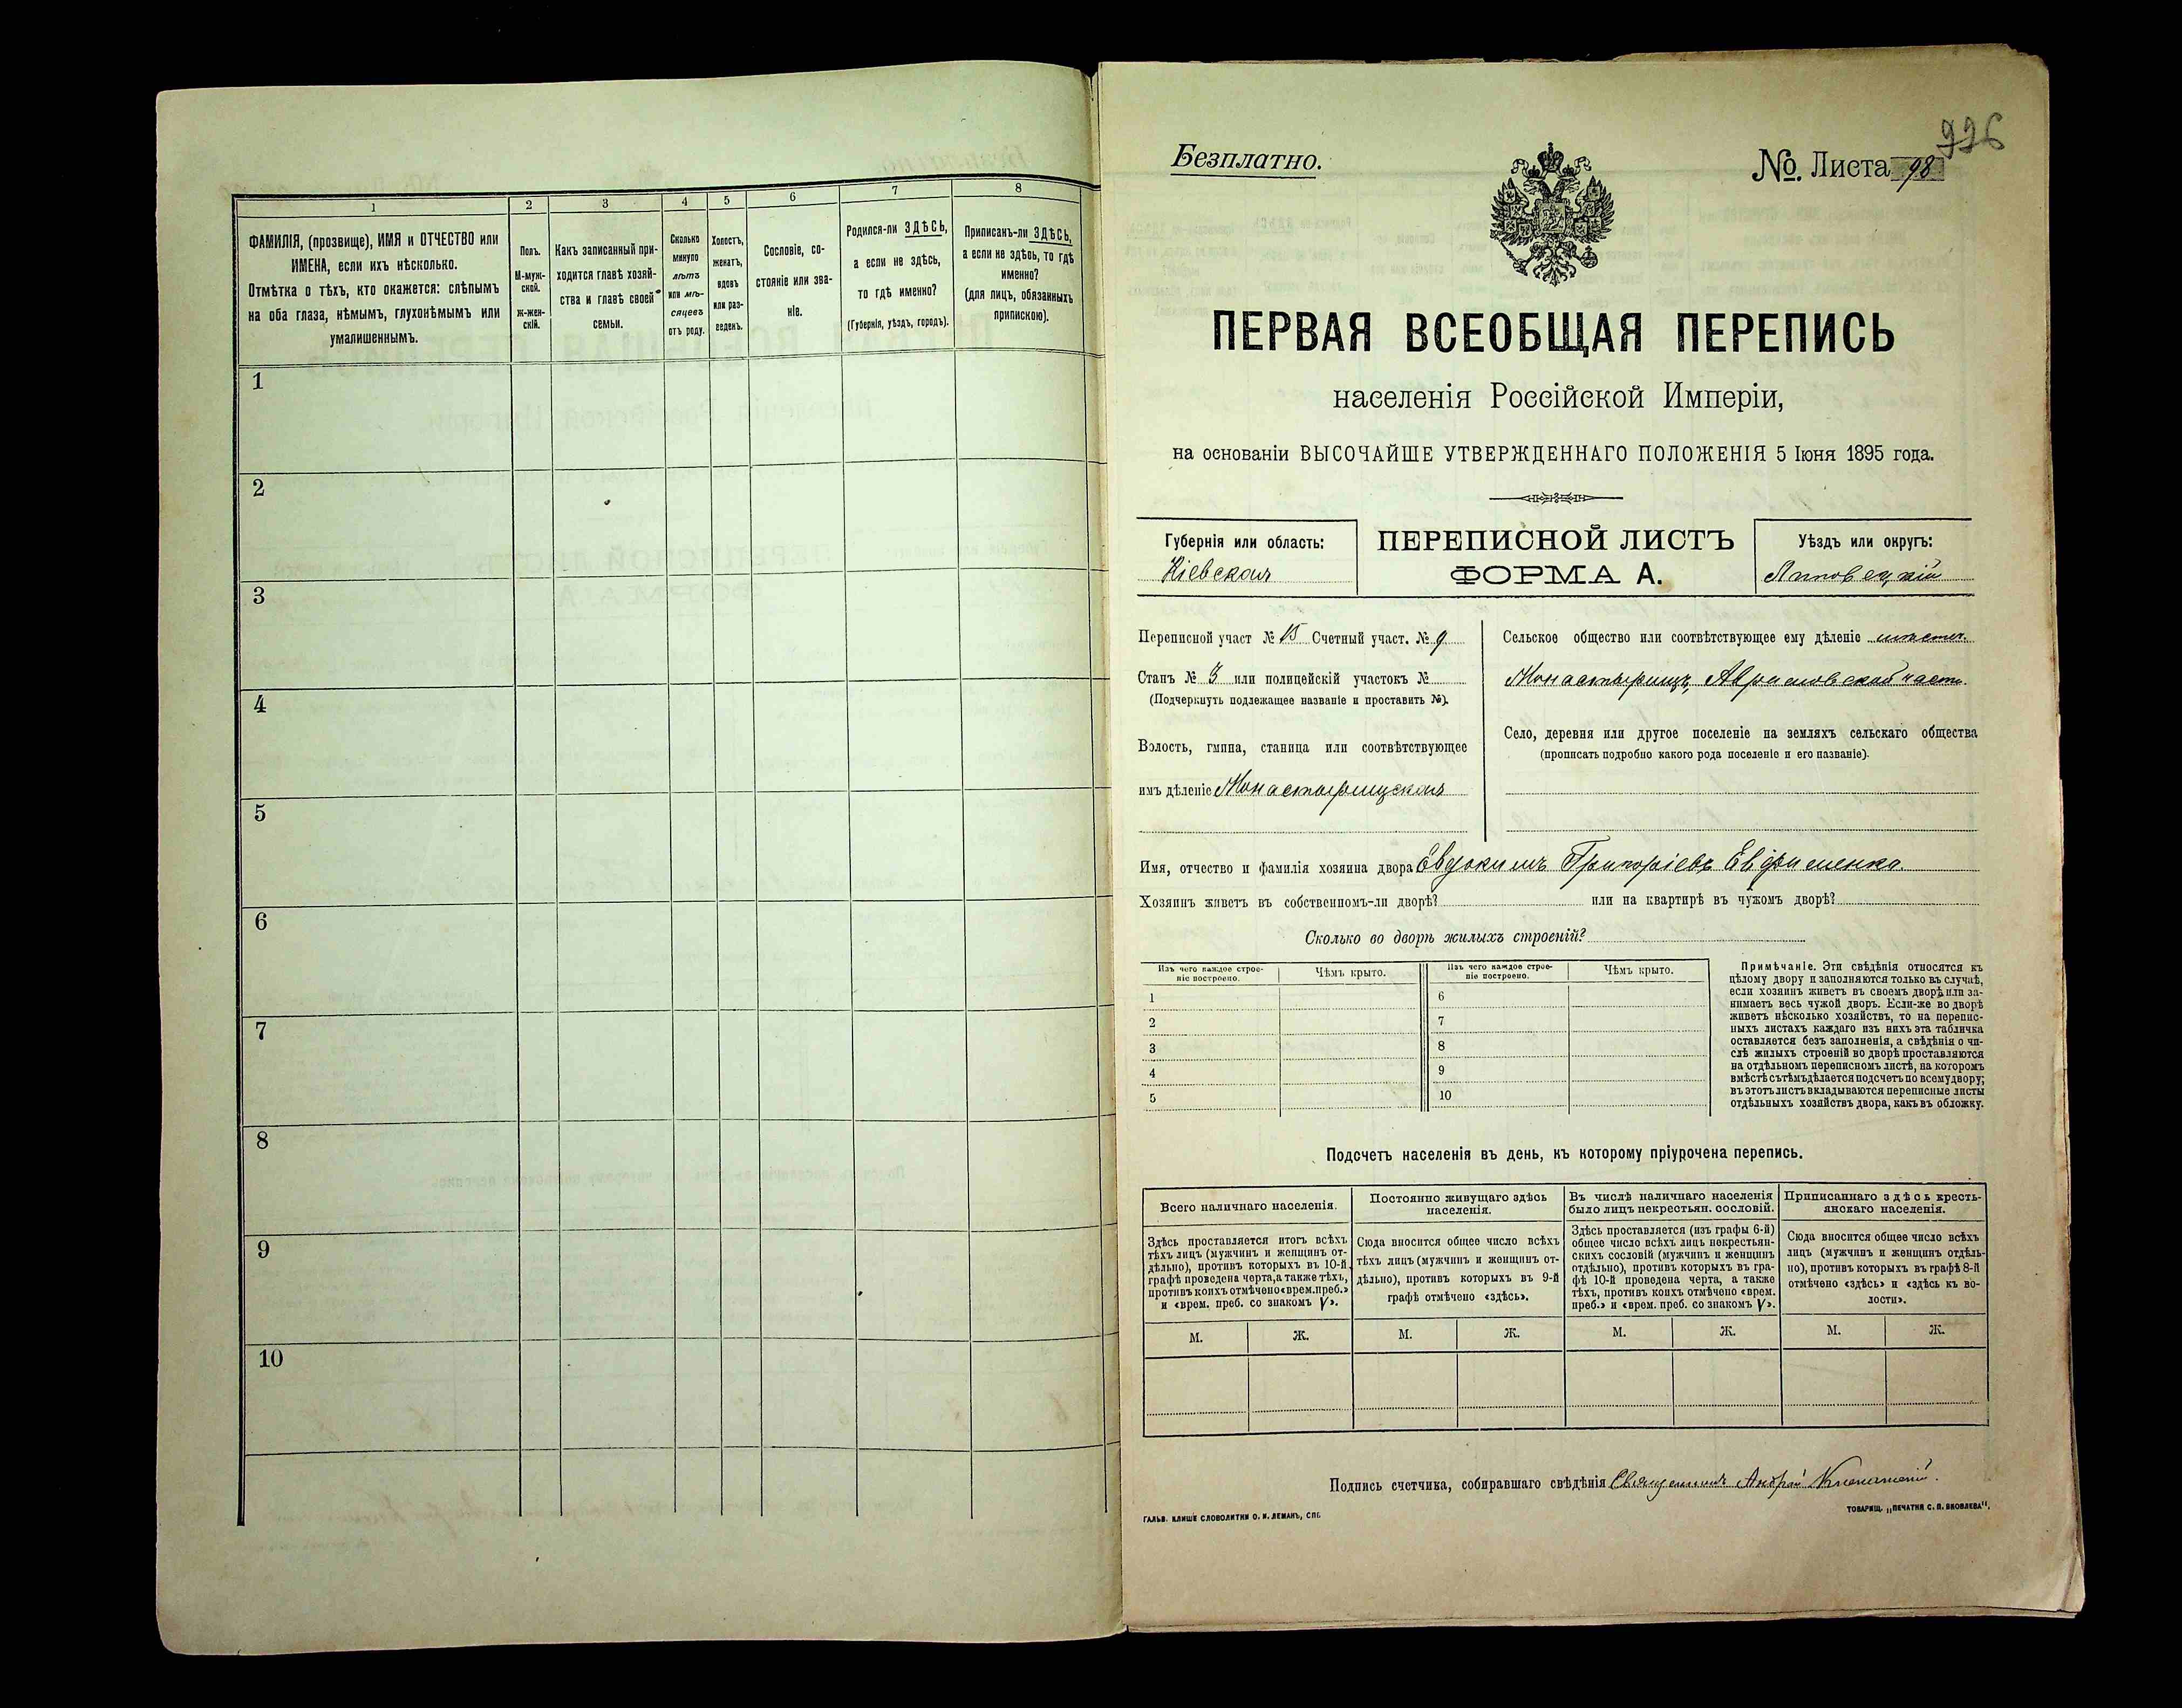 1
2
3
4
5
6
7
8
ФАМИЛІЯ, (прозвище), ИМЯ и ОТЧЕСТВО или
ИМЕНА, если ихъ нѣсколько.
Отмѣтка о тѣхъ, кто окажется: слѣпымъ
на оба глаза, нѣмымъ, глухонѣмымъ или
умалишеннымъ.
Полъ.
М-муж-
ской.
Ж-жен-
скій.
Какъ записанный при-
ходится главѣ хозяй-
ства и главѣ своей
семьи.
Сколько
минуло
лѣтъ
или мѣ-
сяцевъ
отъ роду.
Холостъ,
женатъ,
вдовъ
или раз-
веденъ.
Сословіе, со-
стояніе или зва-
ніе.
Родился-ли ЗДѢСЬ,
а если не здѣсь,
то гдѣ именно?
(Губернія, уѣздъ, городъ).
Приписанъ-ли ЗДѢСЬ,
а если не здѣсь, то гдѣ
именно?
(для лицъ, обязанныхъ
припискою).
1
2
3
4
5
6
7
8
9
10
996
Безплатно.
№. Листа 98
ПЕРВАЯ ВСЕОБЩАЯ ПЕРЕПИСЬ
населенія Россійской Имперіи,
на основаніи ВЫСОЧАЙШЕ УТВЕРЖДЕННАГО ПОЛОЖЕНІЯ 5 Іюня 1895 года.
Губернія или область:
Кіевская
ПЕРЕПИСНОЙ ЛИСТЪ
ФОРМА А.
Уѣздъ или округъ:
Липовецкій
Переписной участ № 15 Счетный участ. № 9
Станъ № 3 или полицейскій участокъ №
(Подчеркнуть подлежащее названіе и проставить №).
Волость, гмина, станица или соотвѣтствующее
имъ дѣленіе Монастырищская
Сельское общество или соотвѣтствующее ему дѣленіе мѣстеч.
Монастырищъ, Аврамовской части
Село, деревня или другое поселеніе на земляхъ сельскаго общества
(прописать подробно какого рода поселеніе и его названіе).
Имя, отчество и фамилія хозяина двора Евдокимъ Григоріевъ Евфименко.
Хозяинъ живетъ въ собственномъ-ли дворѣ? или на квартирѣ въ чужомъ дворѣ?
Сколько во дворѣ жилыхъ строеній?
Изъ чего каждое строе-
ніе построено.
Чѣмъ крыто.
Изъ чего каждое строе-
ніе построено.
Чѣмъ крыто.
1
2
3
4
5
6
7
8
9
10
Примѣчаніе. Эти свѣдѣнія относятся къ
цѣлому двору и заполняются только въ случаѣ,
если хозяинъ живетъ въ своемъ дворѣ или за-
нимаетъ весь чужой дворъ. Если-же во дворѣ
живетъ нѣсколько хозяйствъ, то на перепис-
ныхъ листахъ каждаго изъ нихъ эта табличка
оставляется безъ заполненія, а свѣдѣнія о чи-
слѣ жилыхъ строеній во дворѣ проставляются
на отдѣльномъ переписномъ листѣ, на которомъ
вмѣстѣ съ тѣмъ дѣлается подсчетъ по всему двору;
въ этотъ листъ вкладываются переписные листы
отдѣльныхъ хозяйствъ двора, какъ въ обложку.
Подсчетъ населенія въ день, къ которому пріурочена перепись.
Всего наличнаго населенія.
Здѣсь проставляется итогъ всѣхъ
тѣхъ лицъ (мужчинъ и женщинъ от-
дѣльно), противъ которыхъ въ 10-й
графѣ проведена черта, а также тѣхъ,
противъ коихъ отмѣчено «врем. преб.»
и «врем. преб. со знакомъ V».
Постоянно живущаго здѣсь
населенія.
Сюда вносится общее число всѣхъ
тѣхъ лицъ (мужчинъ и женщинъ от-
дѣльно), противъ которыхъ въ 9-й
графѣ отмѣчено «здѣсь».
Въ числѣ наличнаго населенія
было лицъ некрестьян. сословій.
Здѣсь проставляется (изъ графы 6-й)
общее число всѣхъ лицъ некрестьян-
скихъ сословій (мужчинъ и женщинъ
отдѣльно), противъ которыхъ въ гра-
фѣ 10-й проведена черта, а также
тѣхъ, противъ коихъ отмѣчено «врем.
преб.» и «врем. преб. со знакомъ V».
Приписаннаго здѣсь кресть-
янскаго населенія.
Сюда вносится общее число всѣхъ
лицъ (мужчинъ и женщинъ отдѣль-
но), противъ которыхъ въ графѣ 8-й
отмѣчено «здѣсь» и «здѣсь къ во-
лости».
М. Ж. М. Ж. М. Ж. М. Ж.
Подпись счетчика, собиравшаго свѣдѣнія Священникъ Андрей
ГАЛЬВ. КЛИШЕ СЛОВОЛИТНИ О. И. ЛЕМАНЪ, СПБ.
ТОВАРИЩ. „ПЕЧАТНЯ С. П. ЯКОВЛЕВА“,